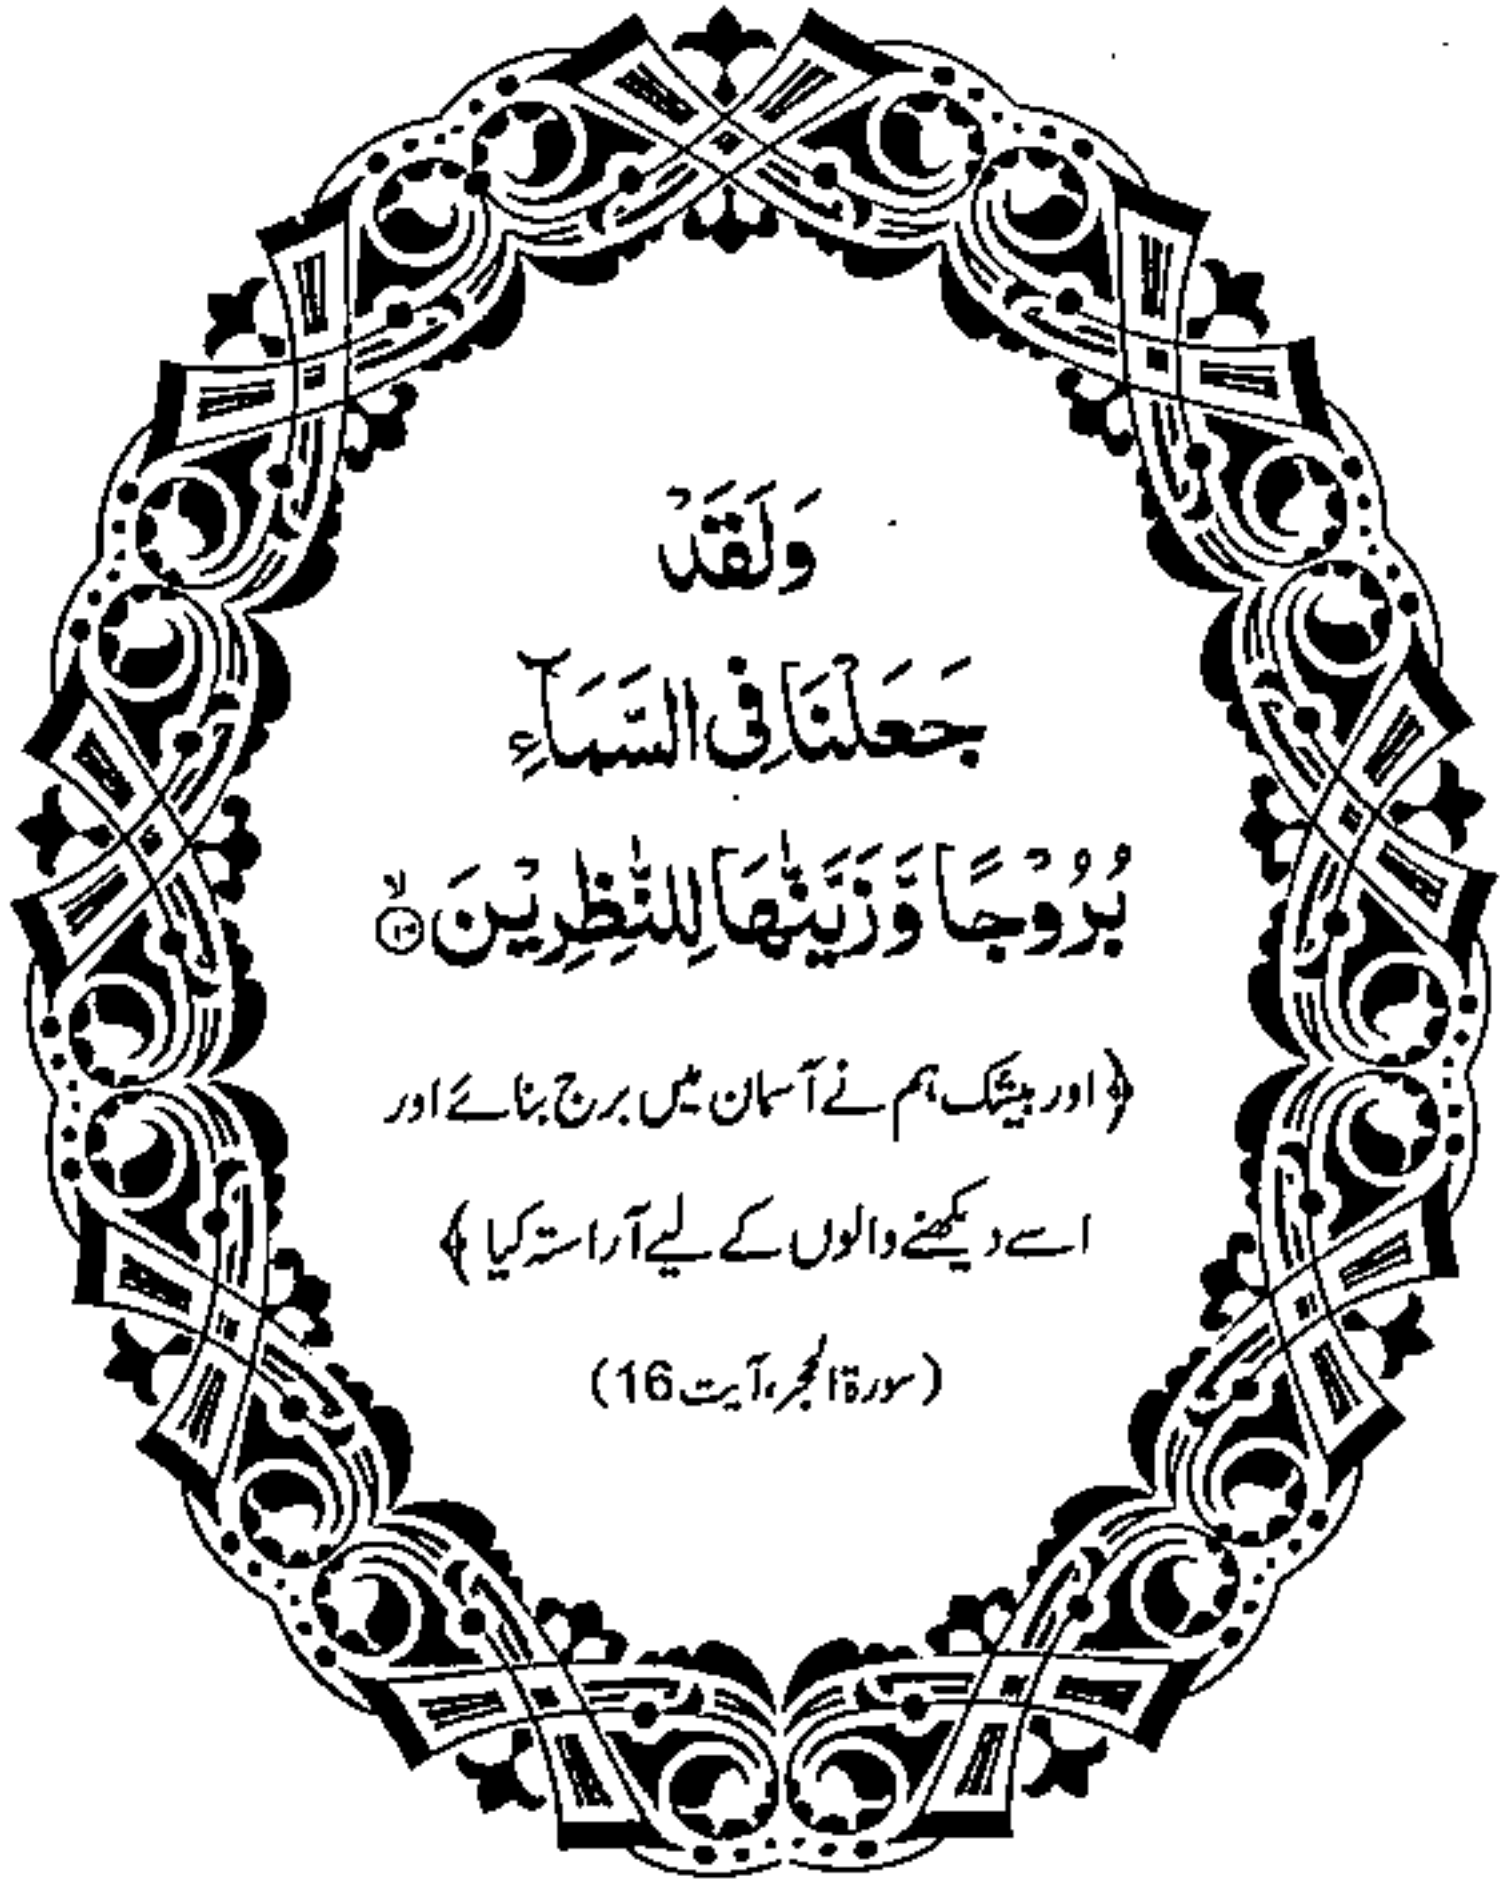 وَلَقَدْ
جَعَلْنَا فِی السَّمَآءِ
بُرُوْجًا وَّ زَیَّنّٰهَا لِلنّٰظِرِیْنَ ۙ
﴿اور بیشک ہم نے آسمان میں برج بنائے اور
اسے دیکھنے والوں کے لیے آراستہ کیا﴾
(سورۃ الحجر، آیت 16)